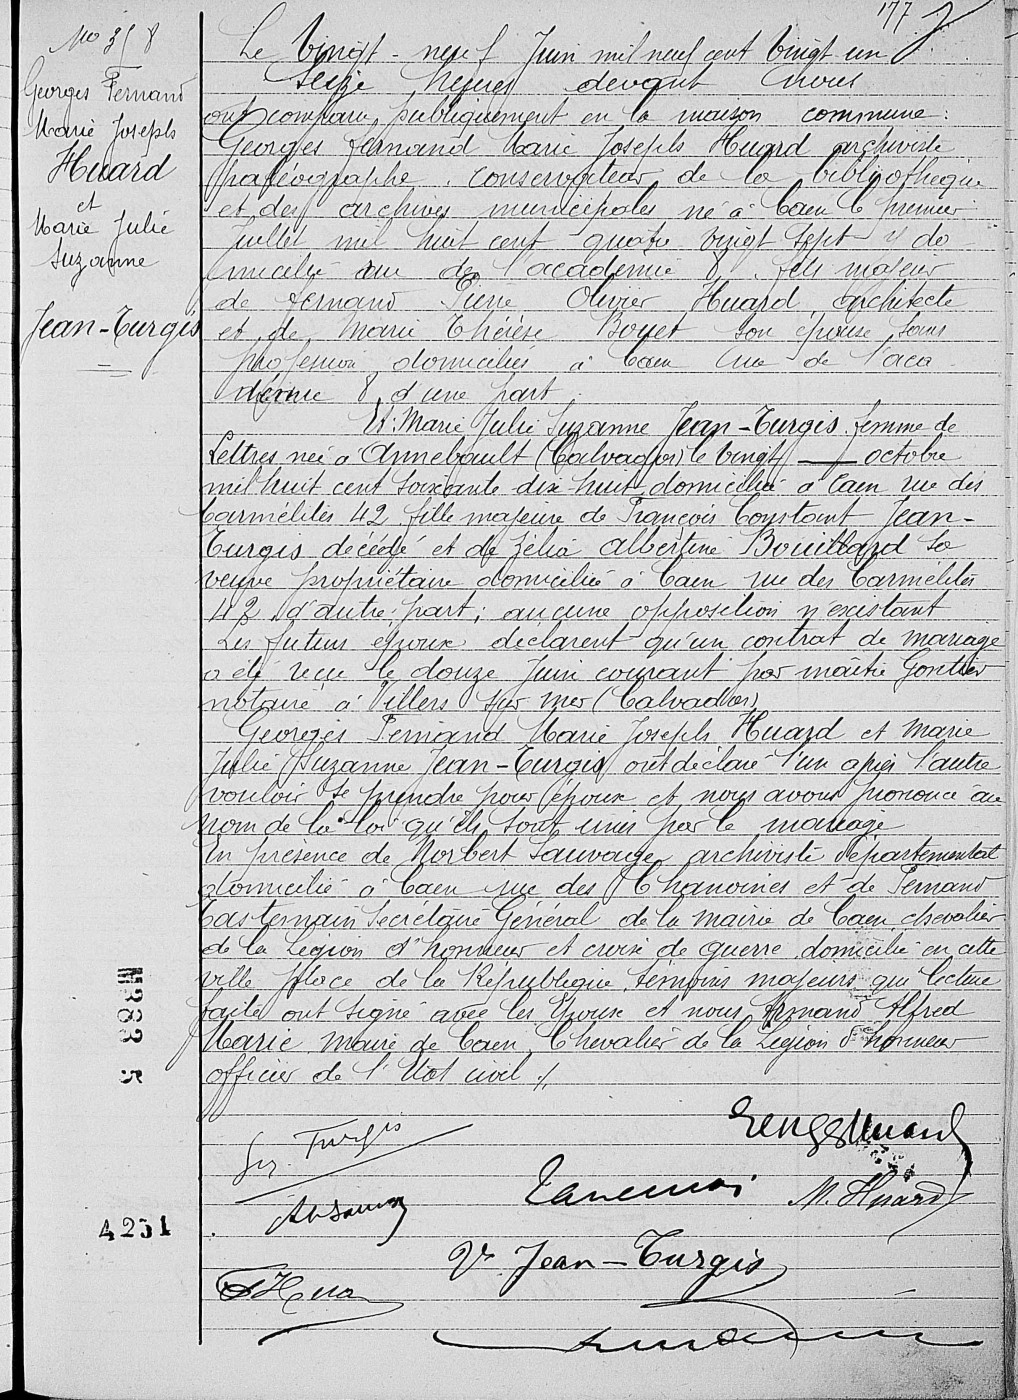 177
No 358
Georges Fernand
Marie Joseph
Huard
et
Marie Julie
Suzanne
Jean-Turgis
Le Vingt-neuf Juin mil neuf cent vingt un
seize heures devant Nous
ont comparu publiquement en la maison commune :
Georges Fernand Marie Joseph Huard archiviste
paléographe, conservateur de la bibliothèque
et des archives municipales né à Caen le premier
Juillet mil huit cent quatre vingt sept do
micilié rue de l'académie 8, fils majeur
de Fernand Pierre Olivier Huard, architecte
et de Marie Thérèse Boyet son épouse sans
profession domiciliés à Caen rue de l'aca
démie 8 d'une part
Et Marie Julie Suzanne Jean-Turgis femme de
Lettres née à Annebault (Calvados) le vingt — octobre
mil huit cent soixante dix-huit domiciliée à Caen rue des
Carmélites 42 fille majeure de François Constant Jean-
Turgis décédé et de Zélia Albertine Bouillard sa
veuve propriétaire domiciliée à Caen rue des Carmélites
42 d'autre part ; aucune opposition n'existant
Les futurs époux déclarent qu'un contrat de mariage
a été reçu le douze Juin courant par maître Gontier
notaire à Villers sur mer (Calvados)
Georges Fernand Marie Joseph Huard et Marie
Julie Suzanne Jean-Turgis ont déclaré l'un après l'autre
vouloir se prendre pour époux et nous avons prononcé au
nom de la loi qu'ils sont unis par le mariage
En présence de Norbert Sauvage archiviste départemental
domicilié à Caen rue des Chanoines et de Fernand
Castemain Secrétaire Général de la mairie de Caen, chevalier
de la Légion d'honneur et croix de guerre, domicilié en cette
ville place de la République, témoins majeurs qui lecture
faite ont signé avec les époux et nous Armand Alfred
Marie maire de Caen, Chevalier de la Légion d'honneur
officier de l'Etat civil ./.
M383 5
4231
Turgis
Huard
M. Huard
Vve Jean-Turgis